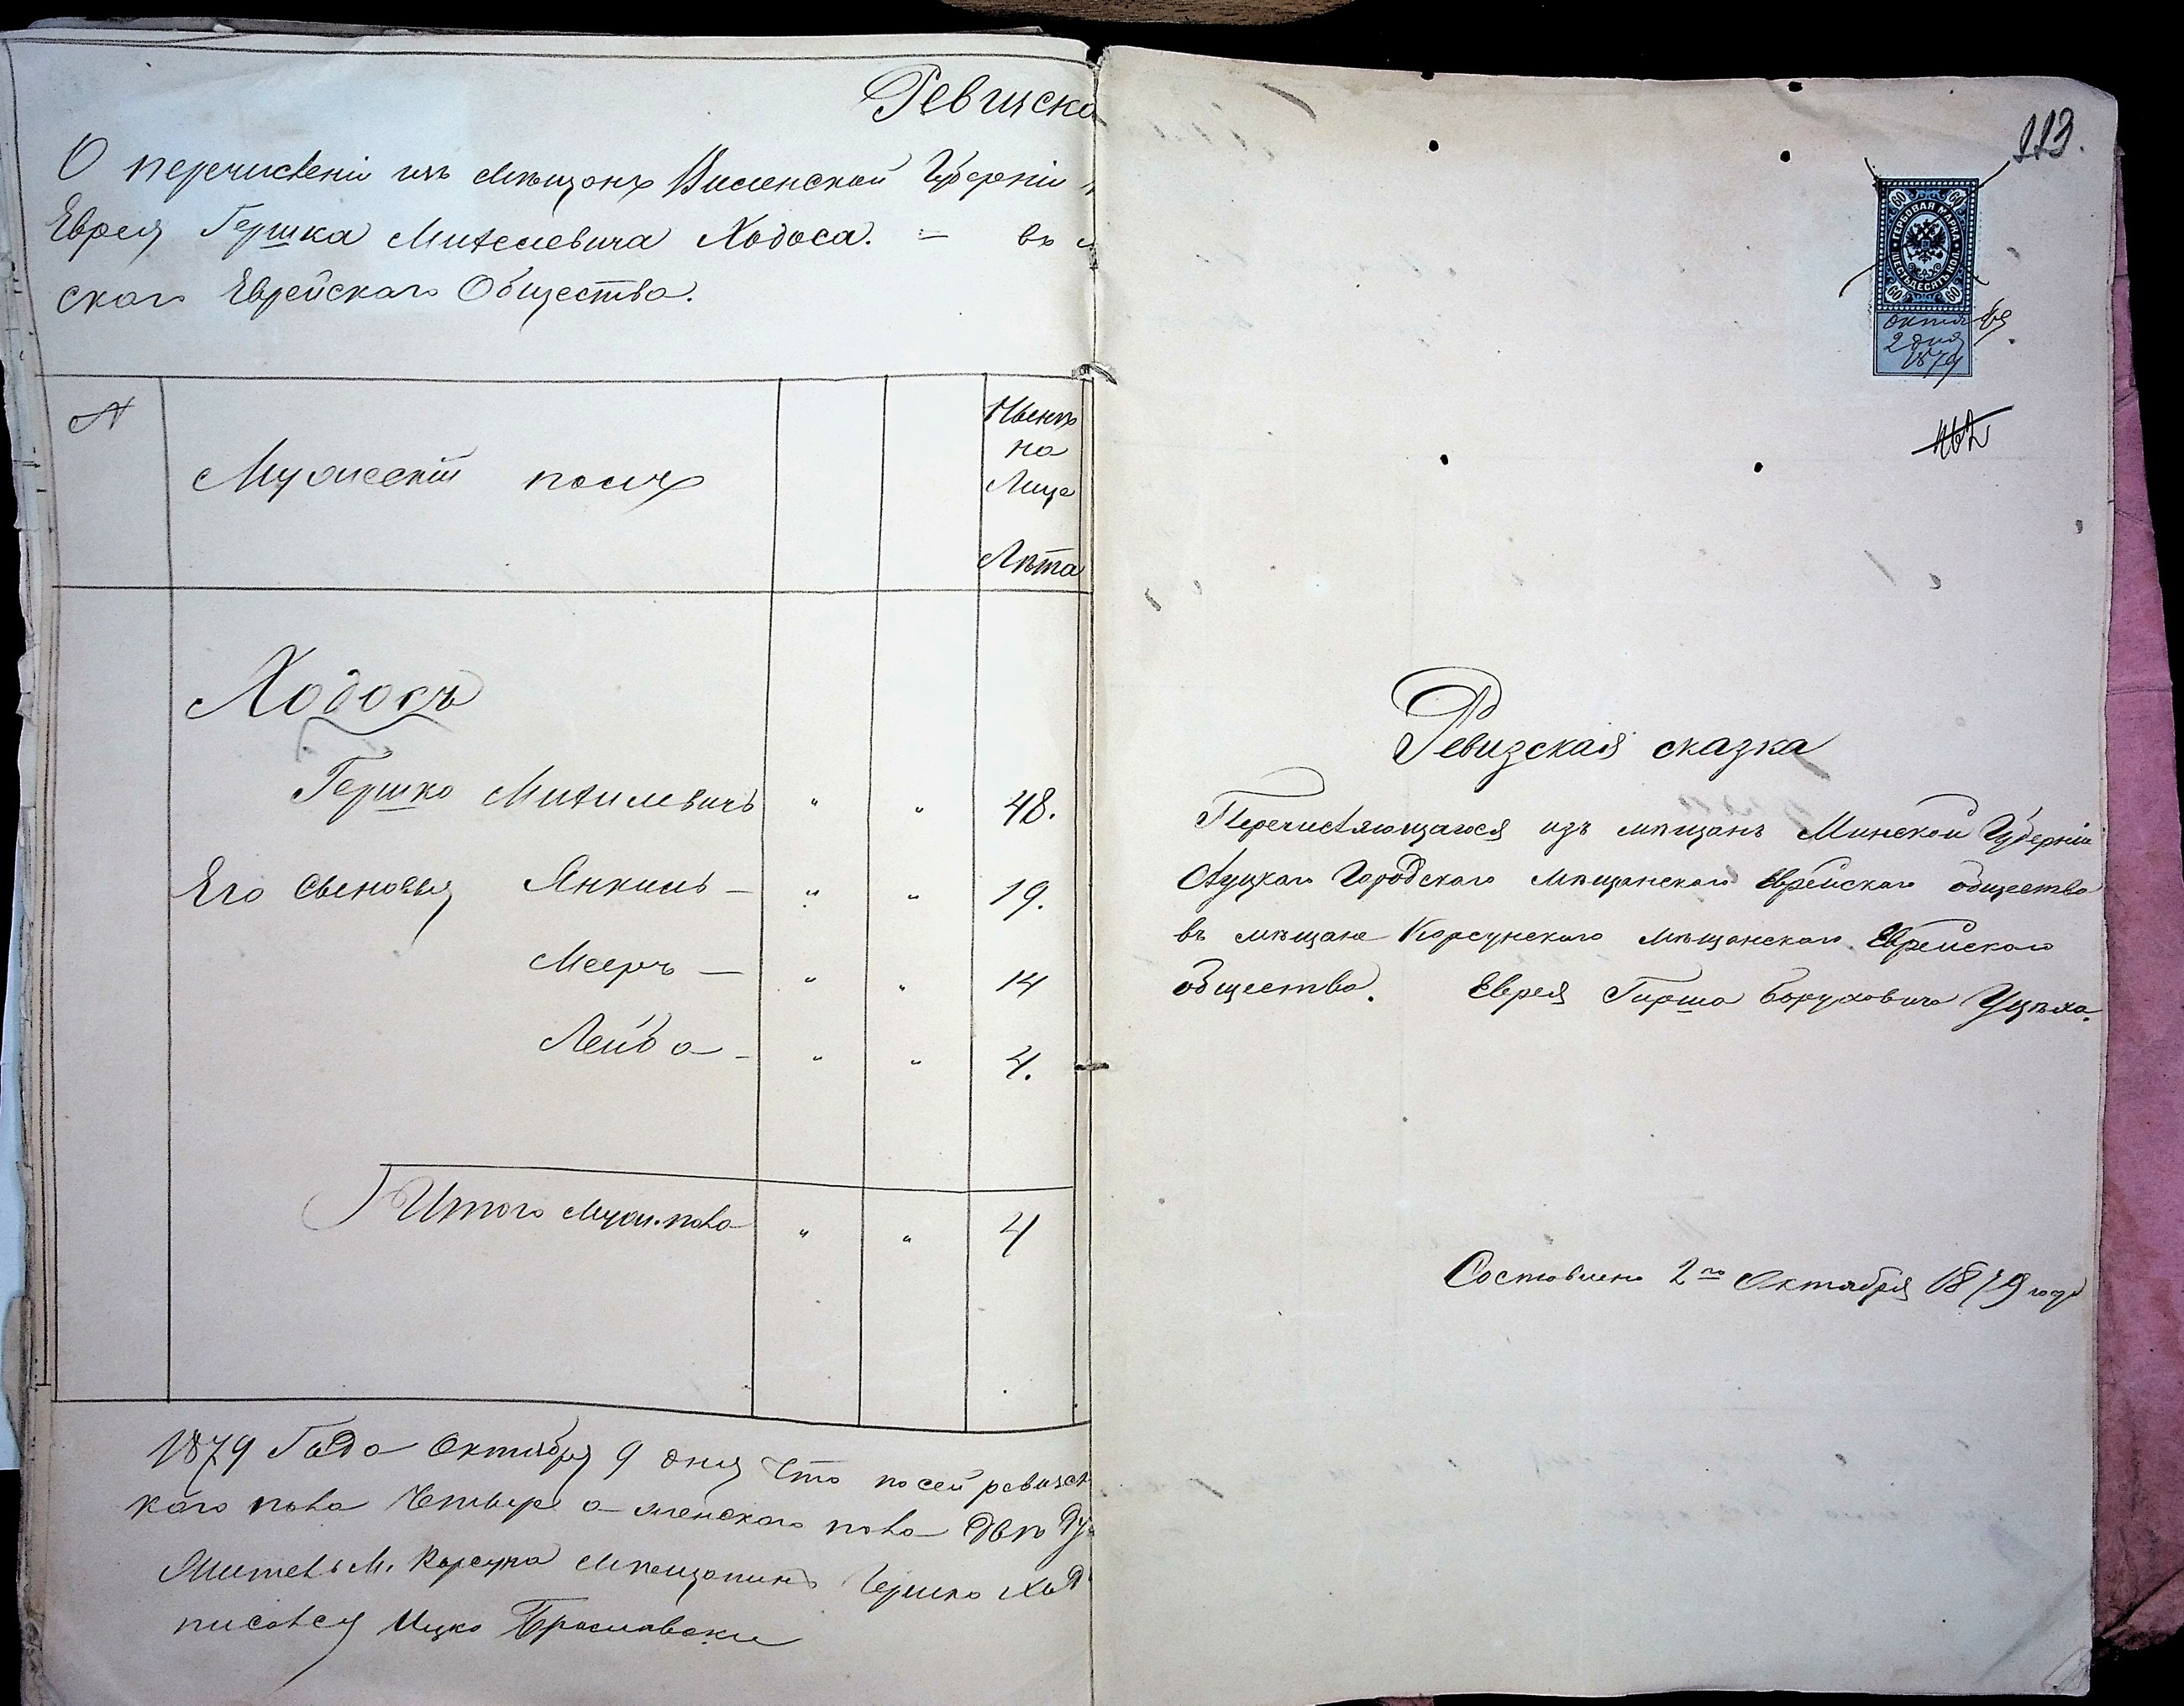 Ревизска
О перечисленіи изъ мѣщанъ Виленской Губерніи
Еврея Гершка Михелевича Ходоса. = въ
скаго Еврейскаго Общества.
№
Мужескій полъ
Нынѣ
на
Лице
Лѣта
Ходосъ
Гершко Михилевичъ " " 48.
Его сыновья Янкиль - " " 19.
Мееръ - " " 14
Лейба - " " 4.
Итого муж. пола " " 4
1879 Года Октября 9 дня Что по сей ревизск
кого пола Четыре а женского пола Двѣ Ду
Житель М. Корсуна Мѣщанинъ Гершко Ход
писался Ицко Браславски
113.
60 60
ГЕРБОВАЯ МАРКА
ШЕСТЬДЕСЯТЪ КОП.
60 60
Октября
2 дня
1879
Ревизская сказка
Перечисляющагося изъ мѣщанъ Минской Губерніи
Слуцкаго Городскаго мѣщанскаго Еврейскаго общества
въ мѣщане Корсунскаго мѣщанскаго Еврейскаго
общества. Еврея Гирша Боруховича
Составлена 2го Октября 1879 года